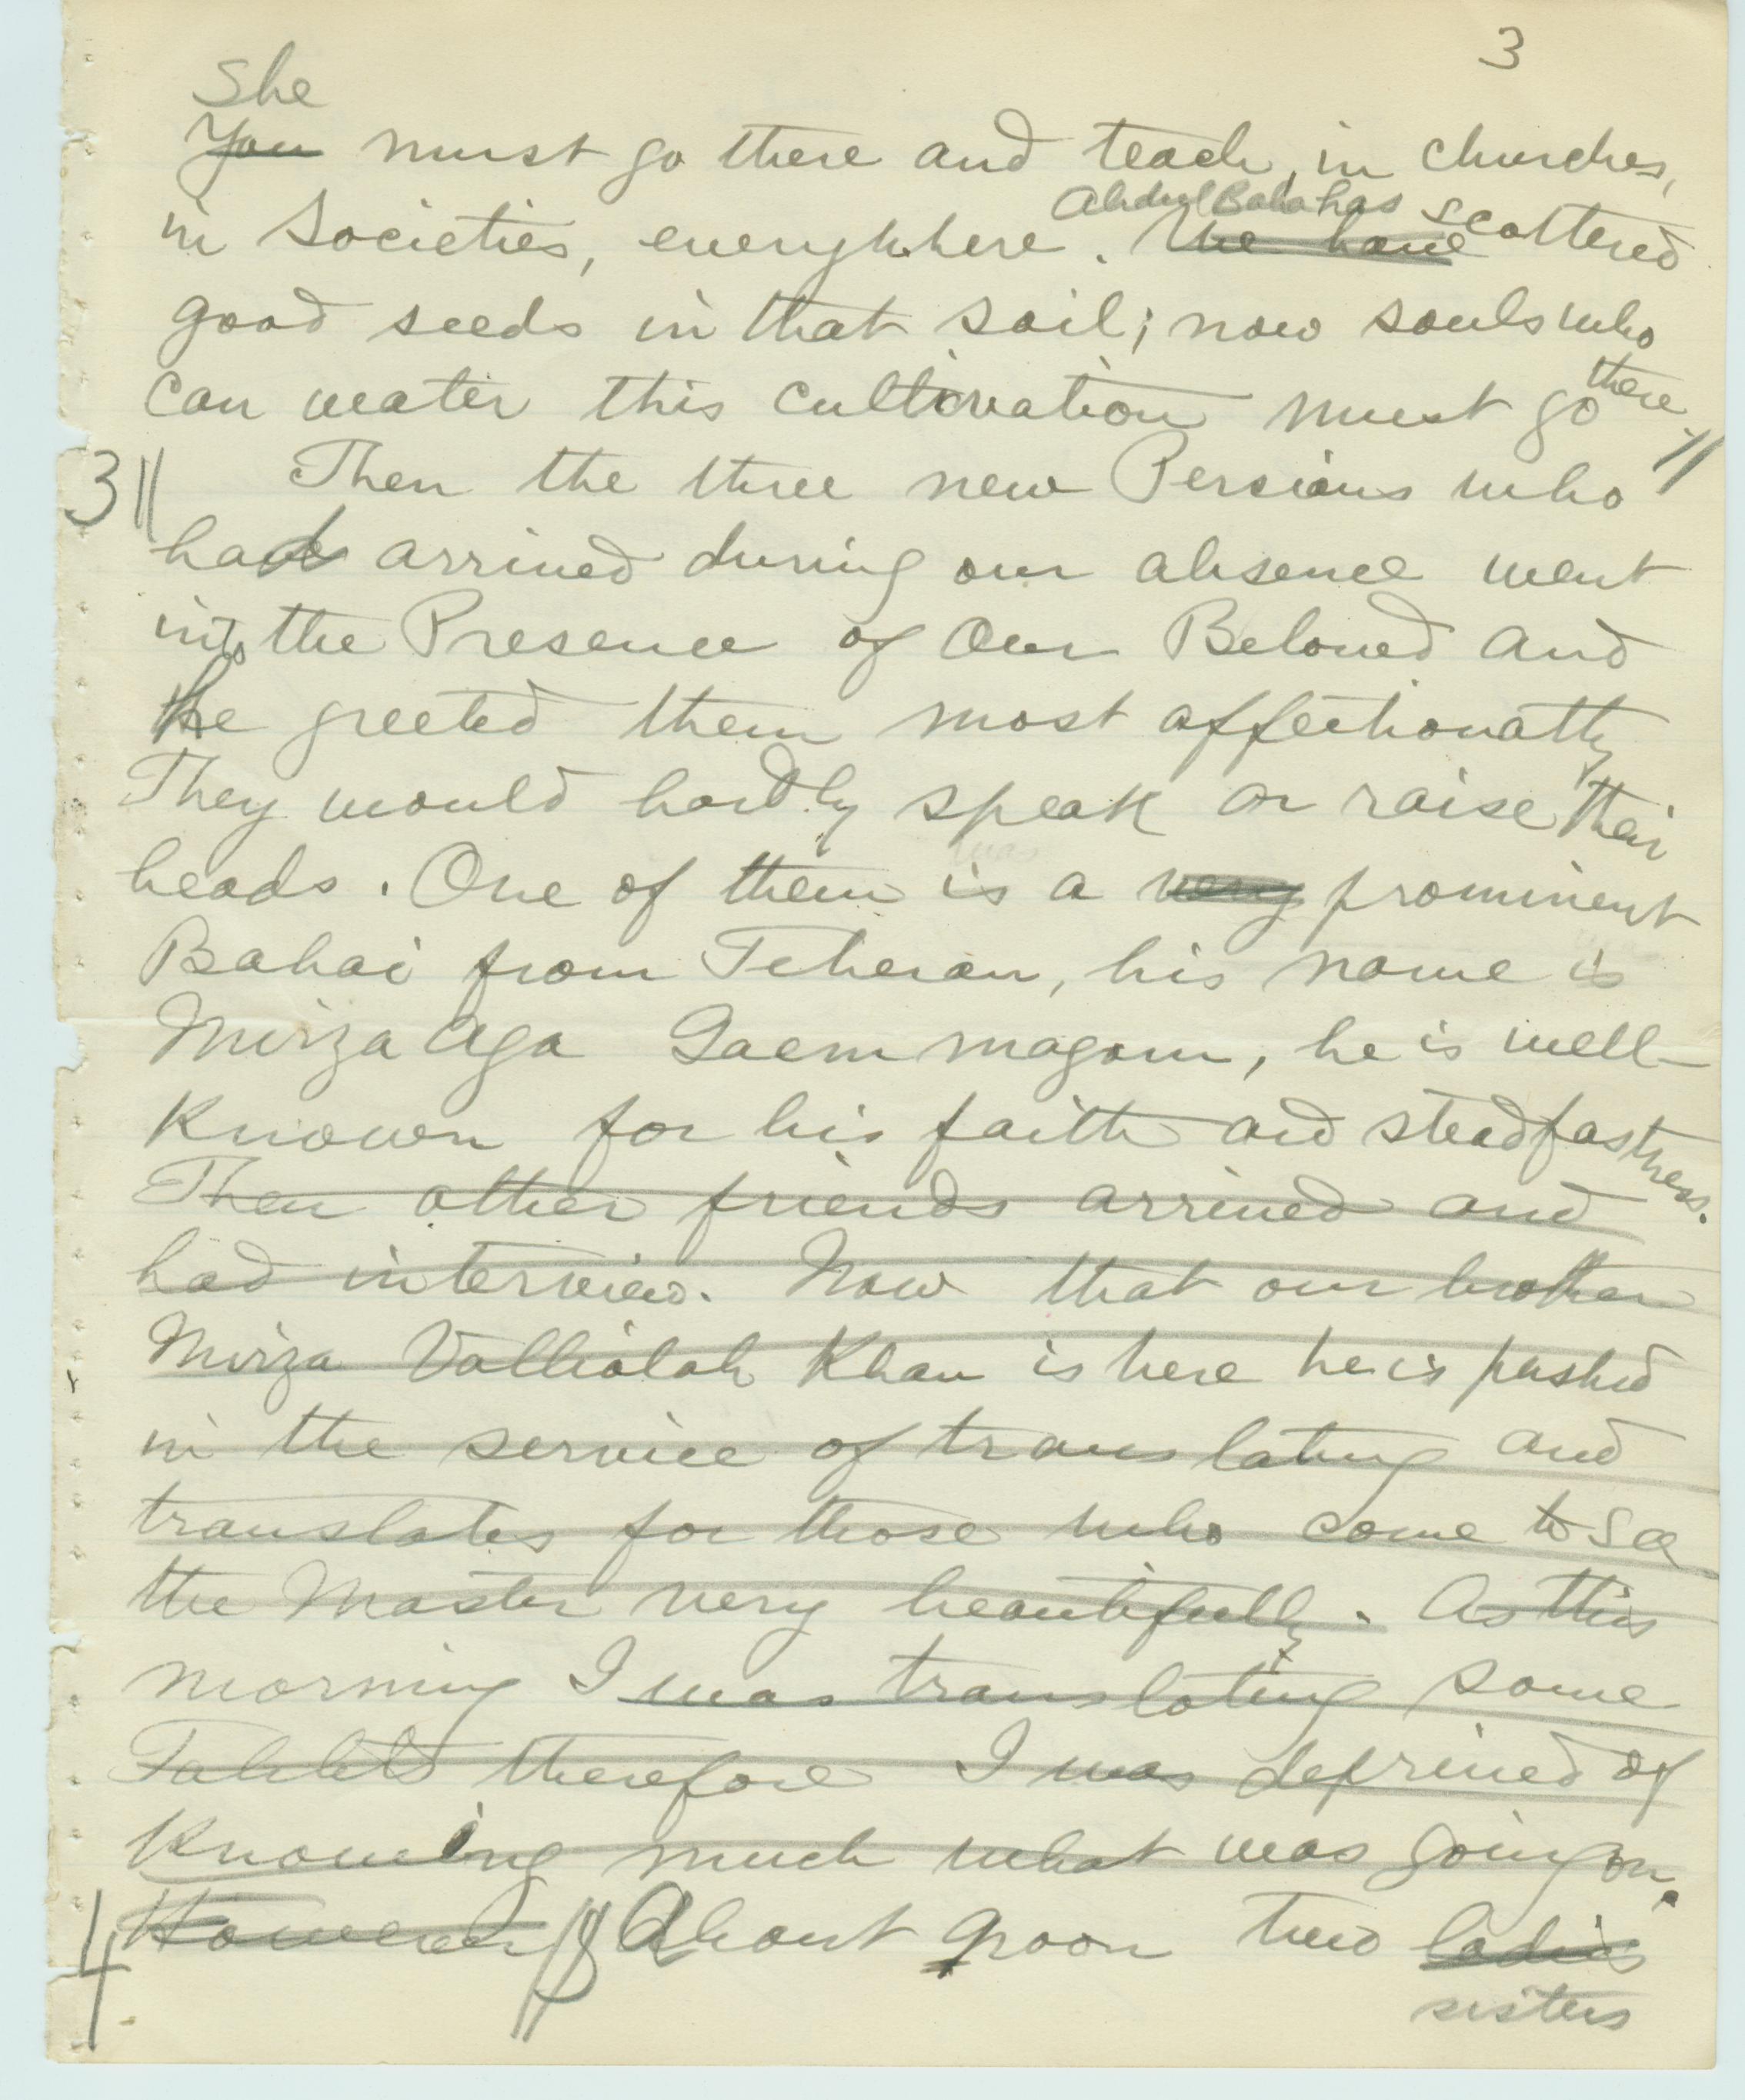 3
She
You must go there and teach, in churches,
Abdul Baha has
in Societies, everywhere. We have scattered
good seeds in that soil; now souls who
can water this cultivation must go there.
3 Then the three new Persians who
had arrived during our absence went
into the Presence of Our Beloved and
He greeted them most affectionatly
They would hardly speak or raise their
was
heads. One of them is a very prominent
Bahai from Teheran, his name is
Mirza Aga Gaem magom, he is well-
known for his faith and steadfastness.
Then other friends arrived and
had interview. Now that our brother
Mirza Valliolah Khan is here he is pushed
in the service of translating and
translates for those who come to see
the Master very beautifully. As this
morning I was translating some
Tablets therefore I was deprived of
knowing much what was going on.
4 However About noon two ladies
sisters